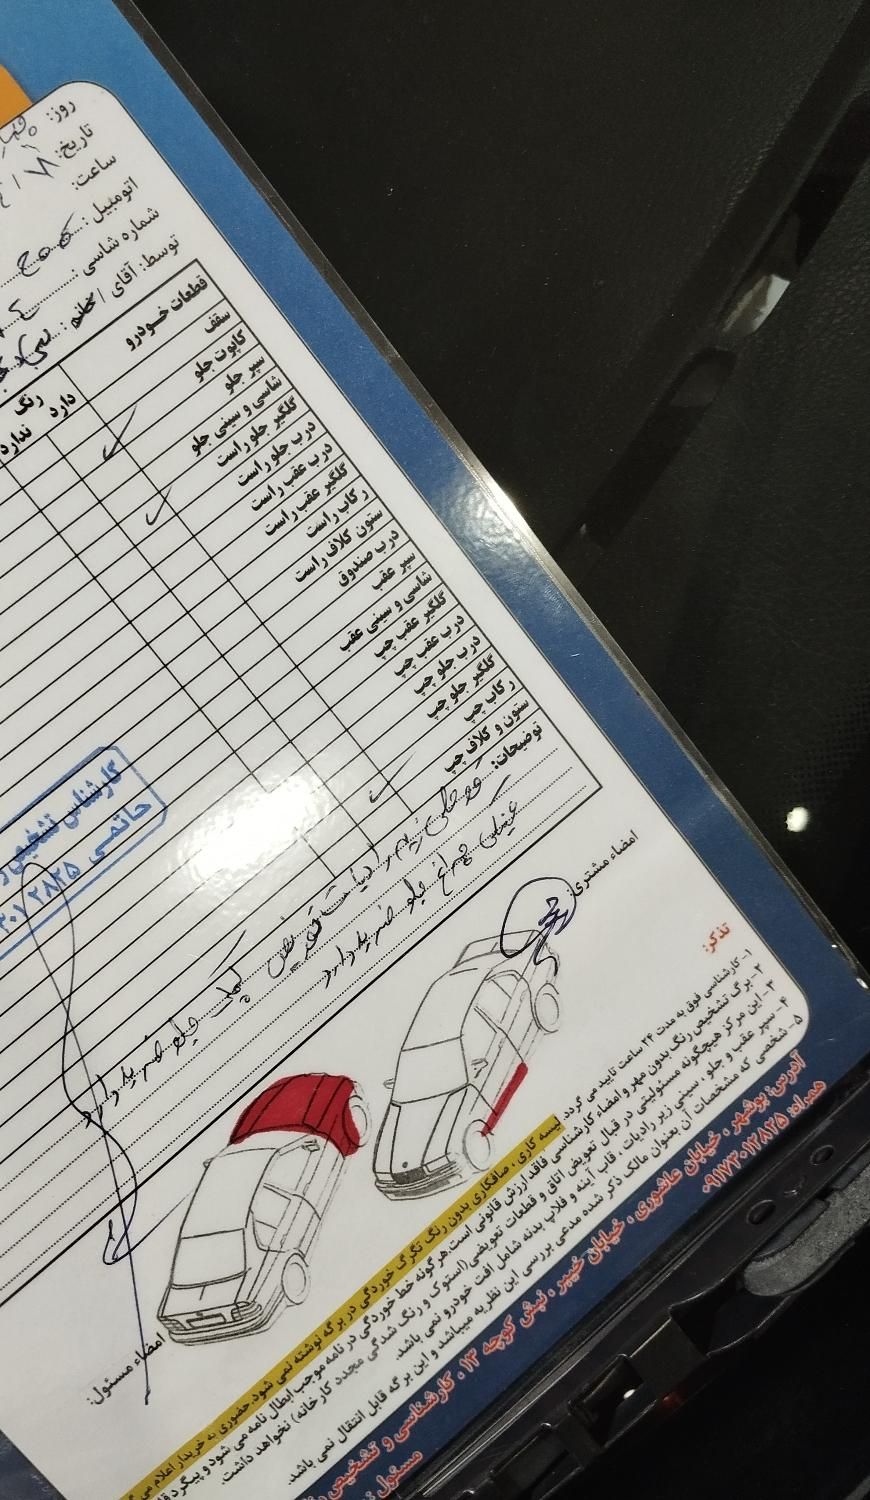 روز:
تاریخ:
ساعت:
اتومبیل:
شماره شاسی:
توسط: آقای / خانم:
قطعات خودرو
رنگ
دارد
ندارد
سقف
کاپوت جلو
سپر جلو
شاسی و سینی جلو
گلگیر جلو راست
درب جلو راست
درب عقب راست
گلگیر عقب راست
رکاب راست
ستون کلاف راست
درب صندوق
سپر عقب
شاسی و سینی عقب
گلگیر عقب چپ
درب عقب چپ
درب جلو چپ
گلگیر جلو چپ
رکاب چپ
ستون و کلاف چپ
توضیحات:
جلو ضربه دارد
چراغ جلو ضربه دارد
کارشناس تشخیص
حاتمی
امضاء مشتری:
امضاء مسئول:
تذکر:
۱- کارشناسی فوق به مدت ۲۴ ساعت تایید می گردد. لیسه کاری ، صافکاری بدون رنگ تگرگ خوردگی در برگه نوشته نمی شود. حضوری به خریدار اعلام می
۲- برگ تشخیص رنگ بدون مهر و امضاء کارشناسی فاقد ارزش قانونی است. هرگونه خط خوردگی در نامه موجب ابطال نامه می شود و پیگرد
۳- این مرکز هیچگونه مسئولیتی در قبال تعویض اتاق و قطعات تعویضی (استوک و رنگ شدگی مجدد کارخانه) نخواهد داشت.
۴- سپر عقب و جلو ، سینی زیر رادیات ، قاب آینه و فلاپ بدنه شامل افت خودرو نمی باشد.
۵- شخصی که مشخصات آن بعنوان مالک ذکر شده مدعی بررسی این نظریه میباشد و این برگه قابل انتقال نمی باشد.
آدرس: بوشهر ، خیابان عاشوری ، خیابان خیبر ، نبش کوچه ۱۳ ، کارشناسی و تشخیص
همراه: ۰۹۱۷۳۰۱۲۸۲۵
مسئول